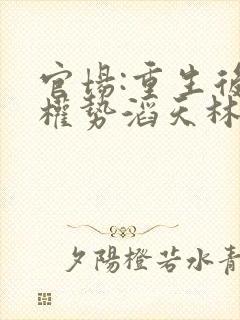 官場:重生後
權勢滔天林
夕陽橙若水青